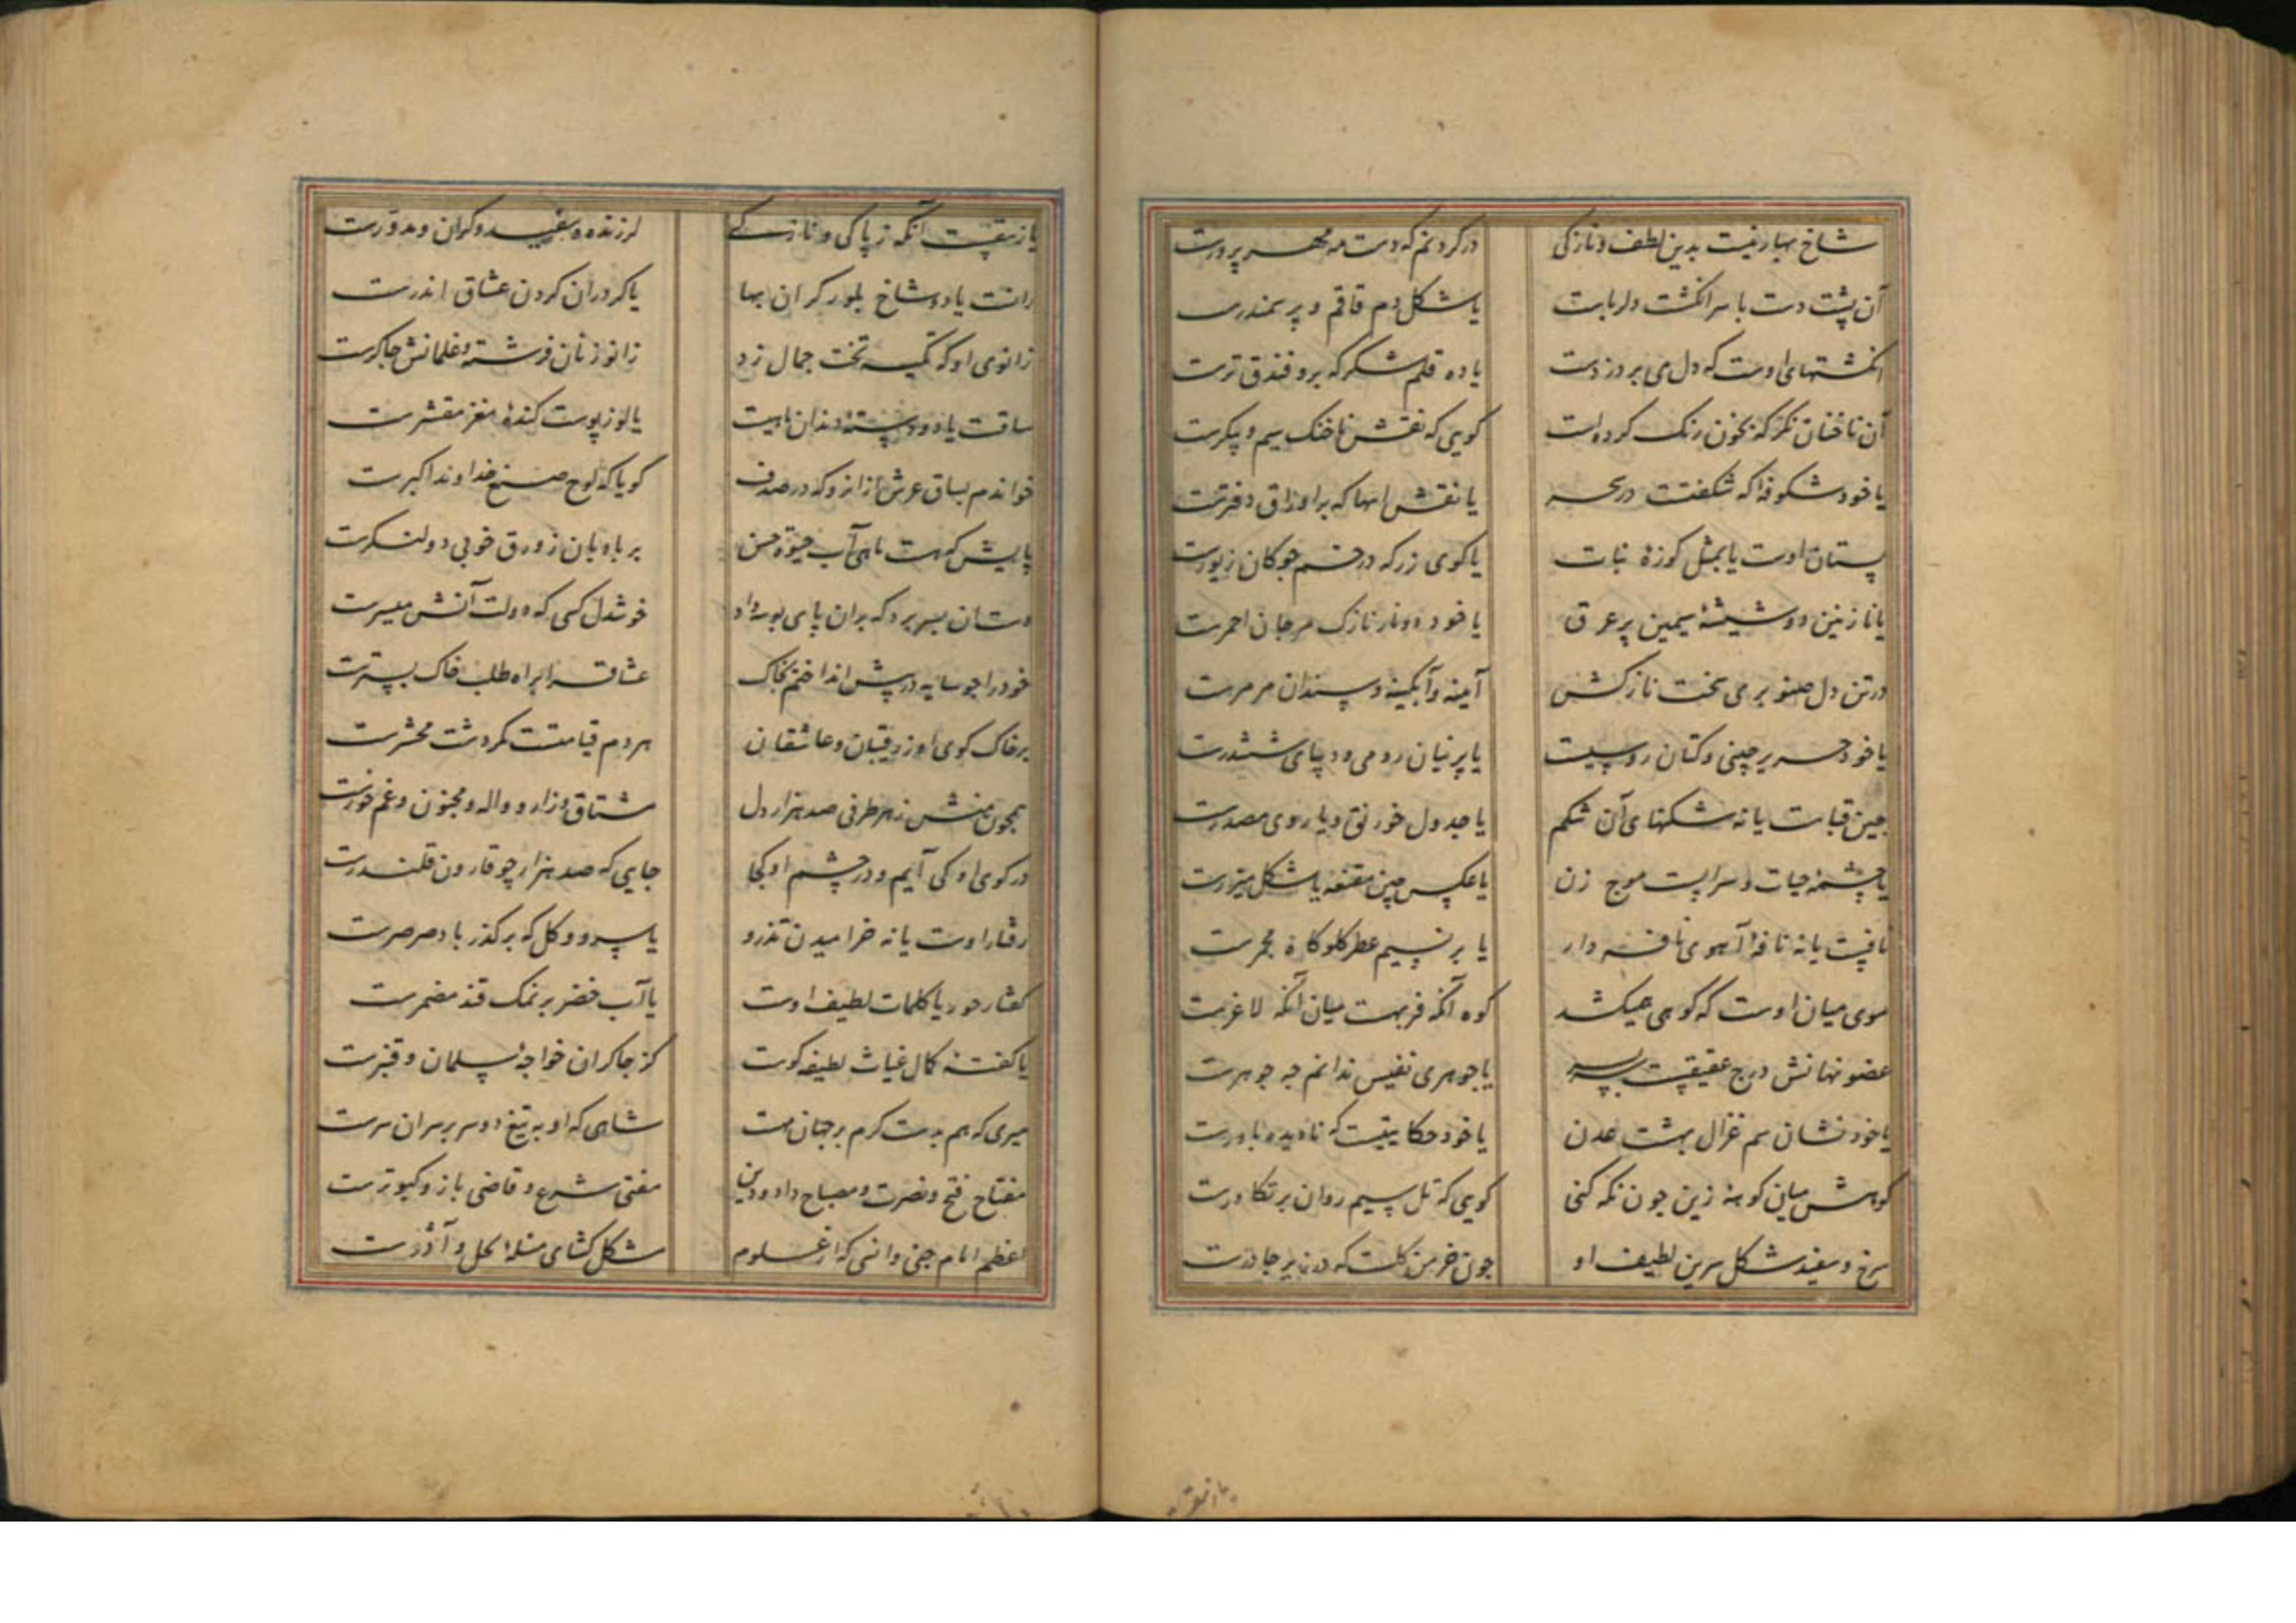 شاخ بهار نیست بدین لطف و نازکی در گردنم که دست مه مهر پرورست
آن پشت دست با سر انگشت دلربات یا شکل دم قاقم و پر سمندرست
انگشتهای اوست که دل می برد ز دست یا ده قلم شکر که برو فندق ترست
آن ناخنان نکر که بخون رنک کرده است کویی که نقش ناخنک سیم و پیکرست
یا خود شکوفه که شکفتست در یا نقش که بر اوراق دفترست
پستان اوست یا بمثل کوزهٔ نبات یا کوی زر که در خم چوکان زیورست
یا نازنین دو شیشهٔ سیمین پر عرق یا خود دو نار نازک مرجان احمرست
در تن دل صنوبری سخت نازکش آینه و آبکینه و سندان مرمرست
یا خود حریر چینی و کتان روسیست یا پرنیان رومی و دیبای ششترست
چین قباست یا نه شکنهای آن شکم یا جدول خورنق و یا روی مصدرست
یا چشمهٔ حیات و سرابست موج زن یا عکس چین مقنعه یا شکل میزرست
نافست یا نه نافهٔ آهوی نافه دار یا بر نسیم عطر مجمرست
موی میان اوست که کوهی همیکشد کوه آنکه فربهست میان آنکه لاغرست
عضو نهانش درج عقیقست یا جوهری نفیس ندانم چه جوهرست
یا خود نشان سم غزال بهشت عدن یا خود حکایتیست که نادیده باورست
کوهش میان کوههٔ زین چون نکه کنی کویی که تل سیم روان بر تکاورست
سرخ و سفید شکل سرین لطیف او چون خرمن کلست که در زیر چادرست
یا زیبقیست آنکه ز پاکی و نازکی لرزنده و سفید و کران و مدورست
رانست یا دو شاخ بلور کران بها یا کرد ران کردن عشاق اندرست
زانوی او که تکیه تخت جمال زد زانو زنان فرشته و غلمانش چاکرست
ساقست یا دو دستهٔ دندان ماهیت یا لوز پوست کندهٔ مغز مقشرست
خواندم بساق عرش از انرو که در صدف کویا که لوح صنع خداوند اکبرست
پایش که هست ماهی آب حیوة حسن بر بادبان زورق خوبی دو لنکرست
دستان بسر برد که بران پای بوسه داد خوشدل کسی که دولت آنش میسرست
خود را چو سایه در پیش انداختم بخاک عشاق را براه طلب خاک بسترست
بر خاک کوی او ز رقیبان و عاشقان هر دم قیامتست مکر دشت محشرست
همچون منش ز هر طرفی صد هزار دل مشتاق و زار و واله و مجنون و غم خورست
در کوی او کی آیم و در چشم او کجا جایی که صد هزار چو قارون قلندرست
رفتار اوست یا نه خرامیدن تذرو یا سرو و کل که بر کذر باد صرصرست
کفتار حور یا کلمات لطیف اوست یا آب خضر بر نمک قند مضمرست
یا کفتهٔ کمال غیاث لطیفه کوست کز چاکران خواجهٔ سلمان و قنبرست
میری که هم بدست کرم بر جهان شاهی که او به تیغ دو سر بر سران سرست
مفتاح فتح و نصرت و مصباح داد و دین مفتی شرع و قاضی باز و کبوترست
اعظم امام جنی و انسی که از علوم مشکل کشای مسئله